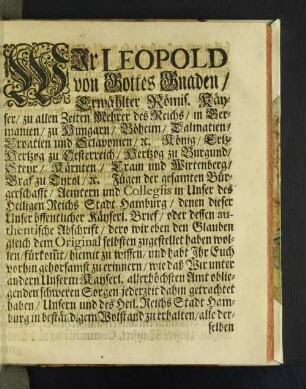 WIr LEOPOLD
von Gottes Gnaden /
Erwählter Römis. Käy-
ser / zu allen Zeiten Mehrer des Reichs / in Ger-
manien / zu Hungarn / Böheim / Dalmatien /
Croatien und Sclavonien / ꝛc. König / Ertz-
Hertzog zu Oesterreich / Hertzog zu Burgund /
Steyr / Kärnten / Crain und Wirtenberg /
Graf zu Tyrol / ꝛc. Fügen der gesamten Bür-
gerschafft / Aemtern und Collegiis in Unser des
Heiligen Reichs Stadt Hamburg / denen dieser
Unser öffentlicher Käyserl. Brief / oder dessen au-
thentische Abschrift / dero wir eben den Glauben
gleich dem Original selbsten zugestellet haben wol-
len / fürkomt / hiemit zu wissen / und habt Ihr Euch
vorhin gehorsamst zu erinnern / wie daß Wir unter
andern Unserm Kayserl. allerhöchsten Amt oblie-
genden schweren Sorgen jederzeit dahin getrachtet
haben / Unsern und des Heil. Reichs Stadt Ham-
burg in beständigem Wolstand zu erhalten / alle der-
selben